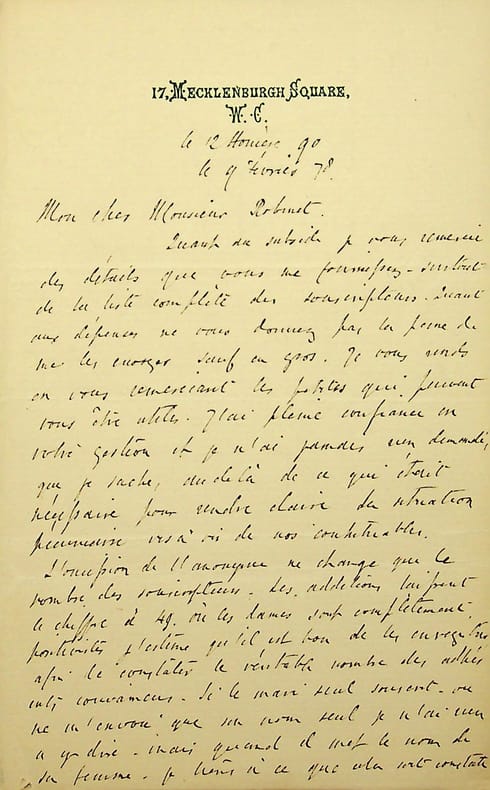 17, MECKLENBURGH SQUARE,
W. C.
le 12 Homère 90
le 9 Février 78.
Mon cher Monsieur Robinet.
Quant au subside je vous remercie
des détails que vous me fournissez - surtout
de la liste complète des souscripteurs. Quant
aux dépenses ne vous donnez pas la peine de
me les envoyer sauf en gros. Je vous rends
en vous remerciant les petites qui peuvent
vous être utiles. J'ai pleine confiance en
votre gestion et je n'ai jamais rien demandé,
que je sache, au delà de ce qui était
nécessaire pour rendre claire la situation
pécuniaire vis à vis de nos contribuables.
L'omission de l'anonyme ne change que le
nombre des souscripteurs. Les additions laissent
le chiffre à 49. où les dames sont complètement
positivistes j'estime qu'il est bon de les enregistrer
afin de constater le véritable nombre des adhé
rents convaincus. Si le mari seul souscrit - ou
ne m'envoie que son nom seul je n'ai rien
a y dire - mais quand il met le nom de
sa femme - je tiens à ce que cela soit constaté